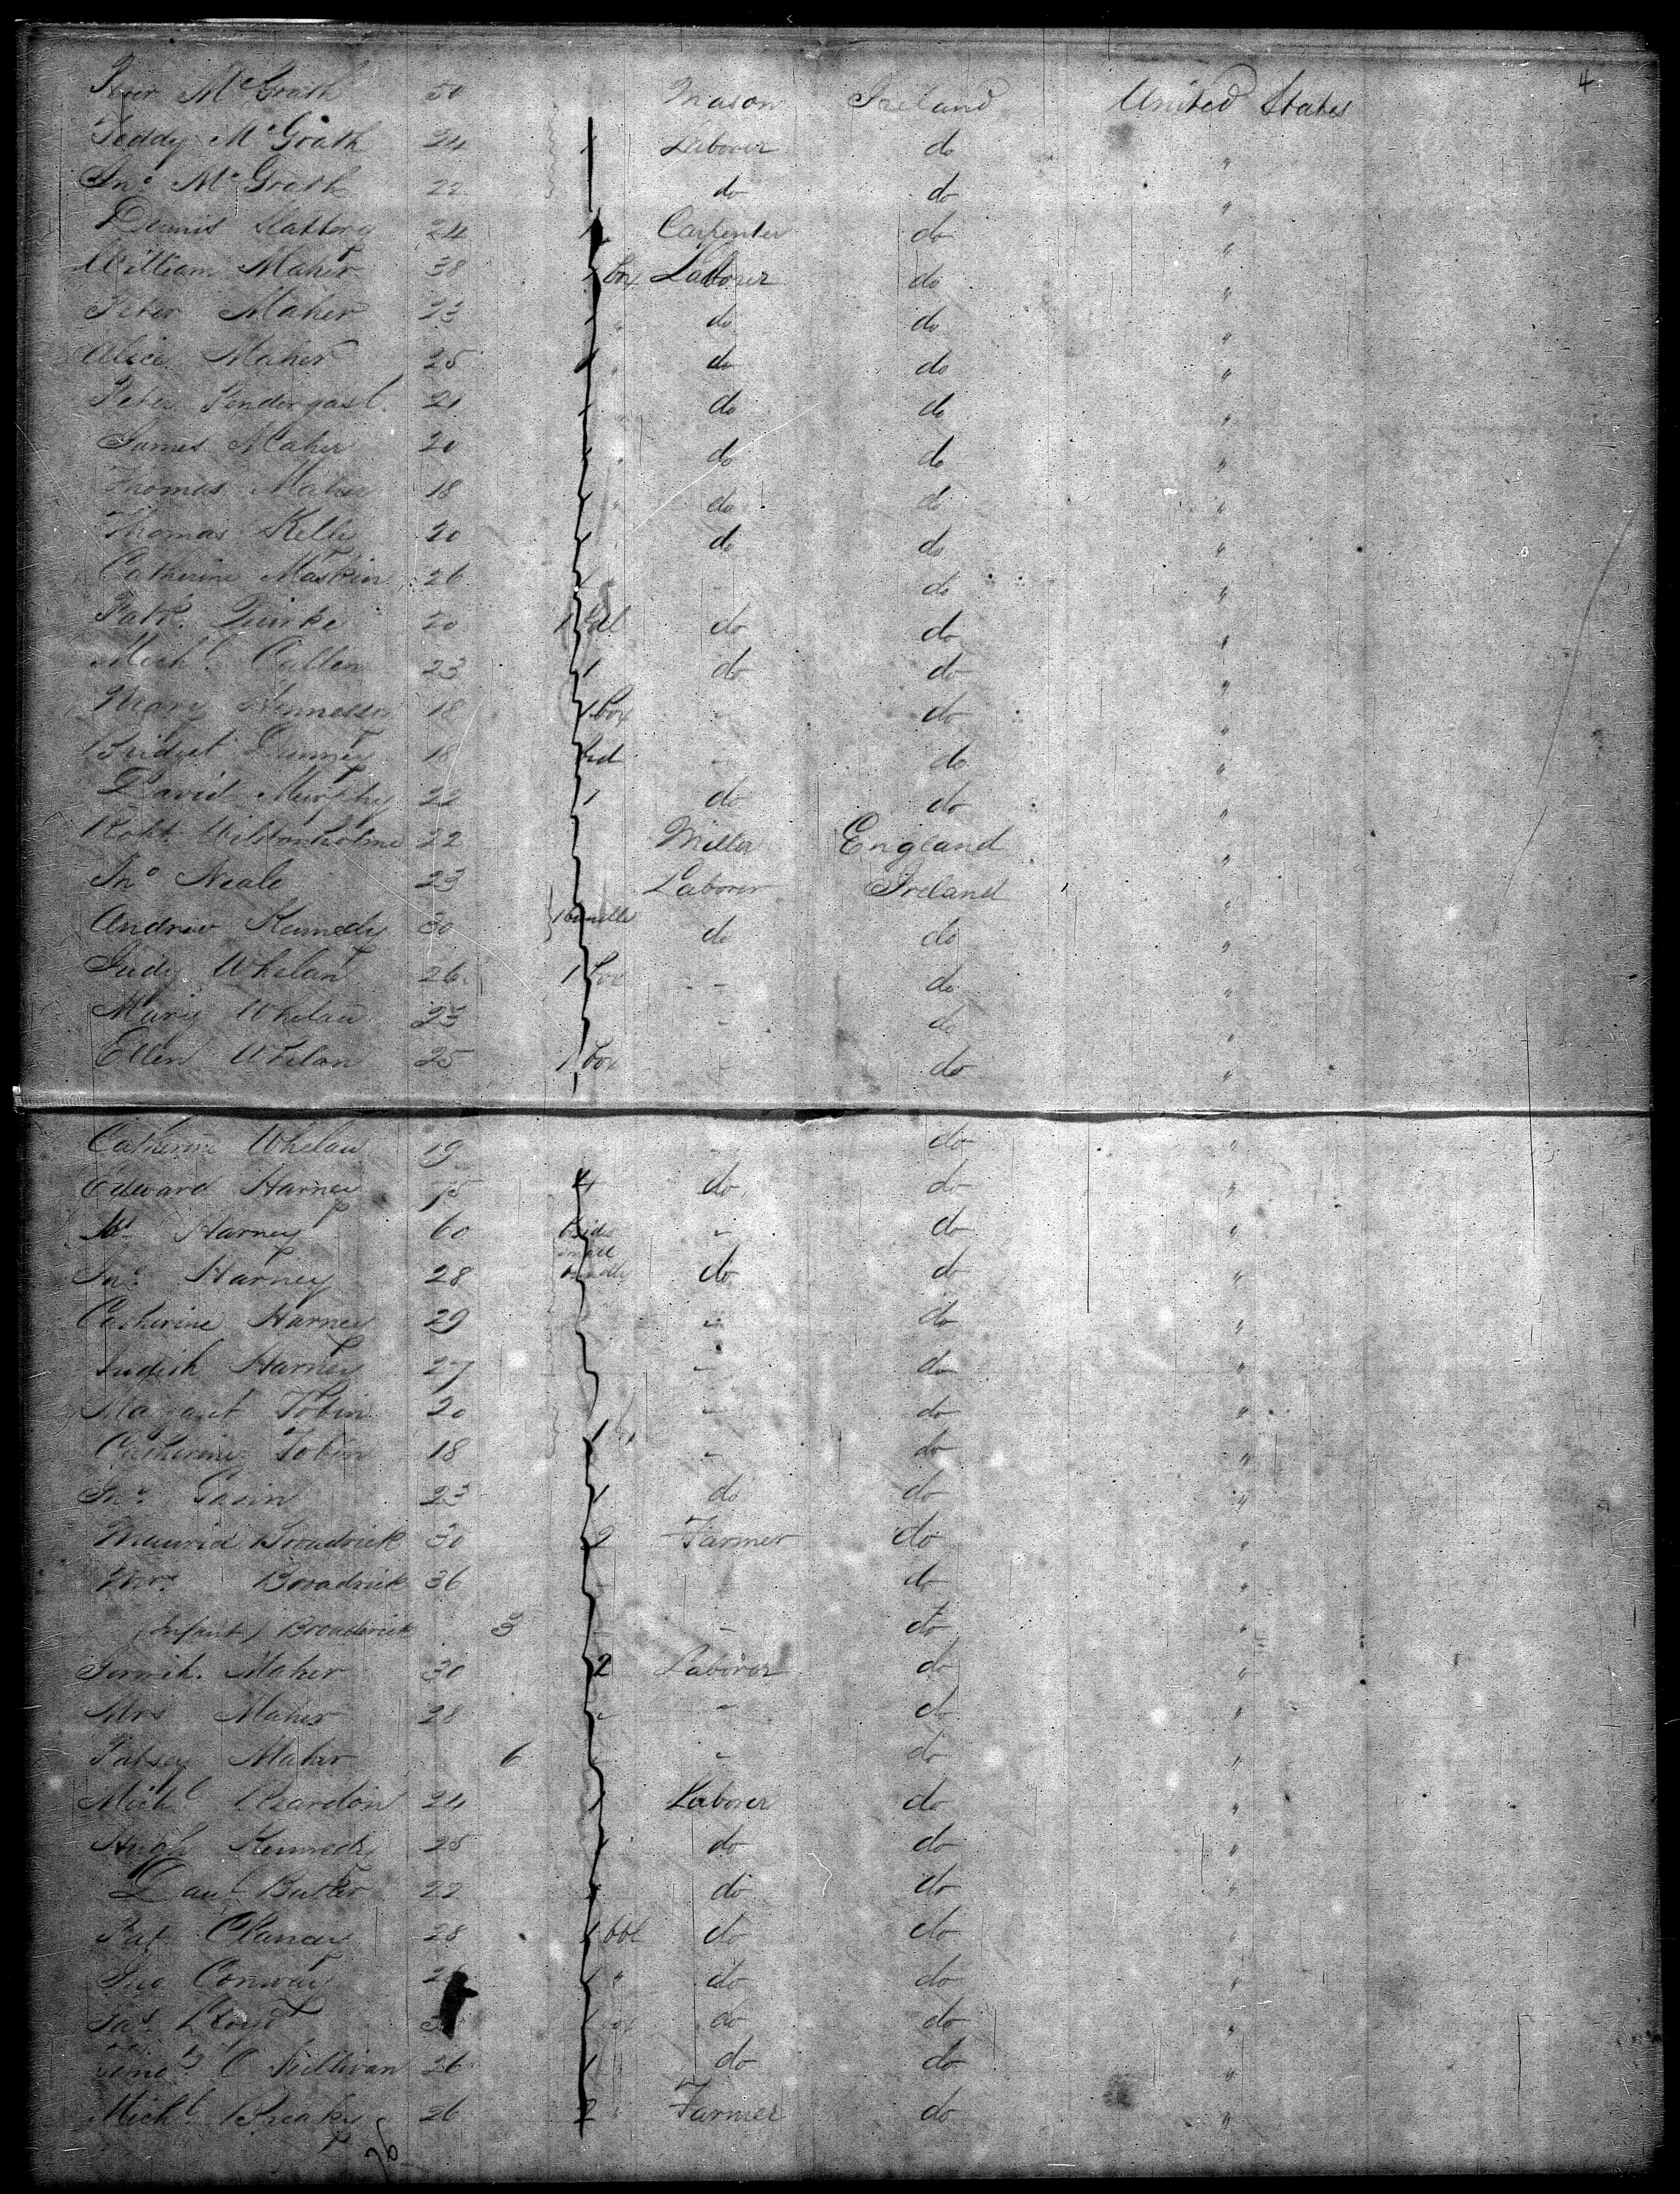 4
McGrath 50 Mason Ireland United States
Teddy McGrath 24 1 Laborer do "
Jno McGrath 22 do do "
Dennis Slattery 24 1 Carpenter do "
William Maher 38 1 box Laborer do "
Peter Maher 23 1 " do do "
Alice Maher 25 1 " do do "
Peter Pendergast 21 1 do do "
James Maher 20 1 " do do "
Thomas Maher 18 1 " do do "
Thomas Kelly 20 1 " do do "
Catherine Maskin 26 1 - do "
Patk. Quirke 20 1 do do "
Michl Cullen 23 1 do do "
Mary Hennessy 18 1 box - do "
Bridget 18 - do "
David Murphy 22 1 do do "
Robt. 22 Miller England "
Jno Neale 23 Laborer Ireland "
Andrew Kennedy 30 1 bundle do do "
Judy Whelan 26 1 box - do "
Mary Whelan 23 - do "
Ellen Whelan 25 1 box - do "
Catherine Whelan 19 - do "
Edward Harney 75 4 do do "
Harney 60 - do "
small
Jno. Harney 28 do do "
Catherine Harney 29 - do "
Judith Harney 27 - do "
Margaret Tobin 20 - do "
Catherine Tobin 18 1 - do "
Jno. 23 1 do do "
Maurice Broadrick 30 2 Farmer do "
Mrs Broadrick 36 - do "
(Infant) Broadrick 3 - - do "
Maher 30 2 Laborer do "
Mrs Maher 28 - - do "
Patsey Maher 6 - - do "
Michl Reardon 24 1 Laborer do "
Hugh Kennedy 25 1 do do "
Danl Butler 22 1 do do "
Pat Clancy 28 1 bbl do do "
Jno Conway 1 " do do "
Jas Lloyd 1 box do do "
O Sullivan 26 1 do do "
Michl 26 2 " Farmer do "